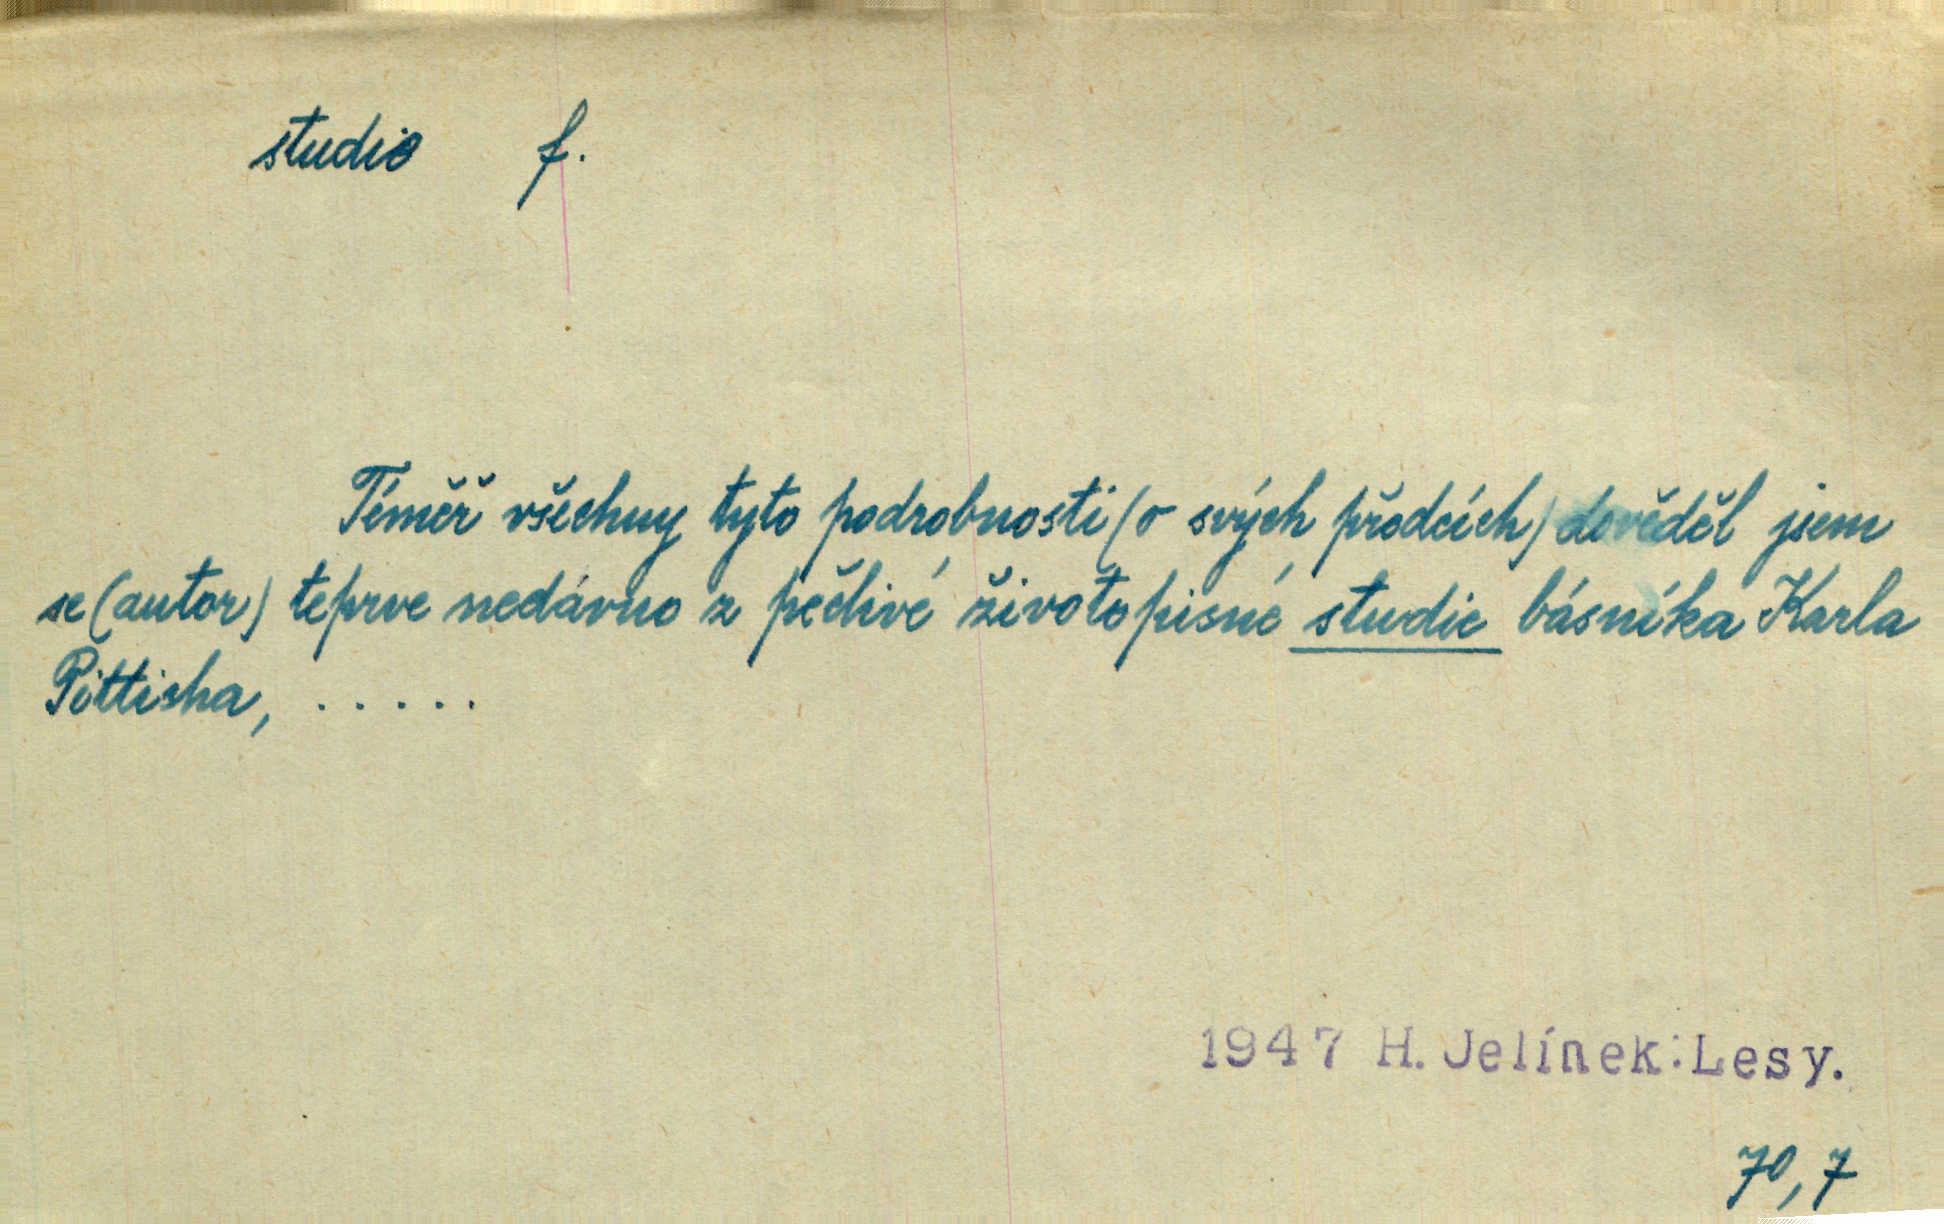 studie f.
Téměř všechny tyto podrobnosti (o svých předcích) dověděl jsem
se (autor) teprve nedávno z pečlivé životopisné studie básníka Karla
Pittisha, .....
1947 H. Jelínek: Lesy.
70,7